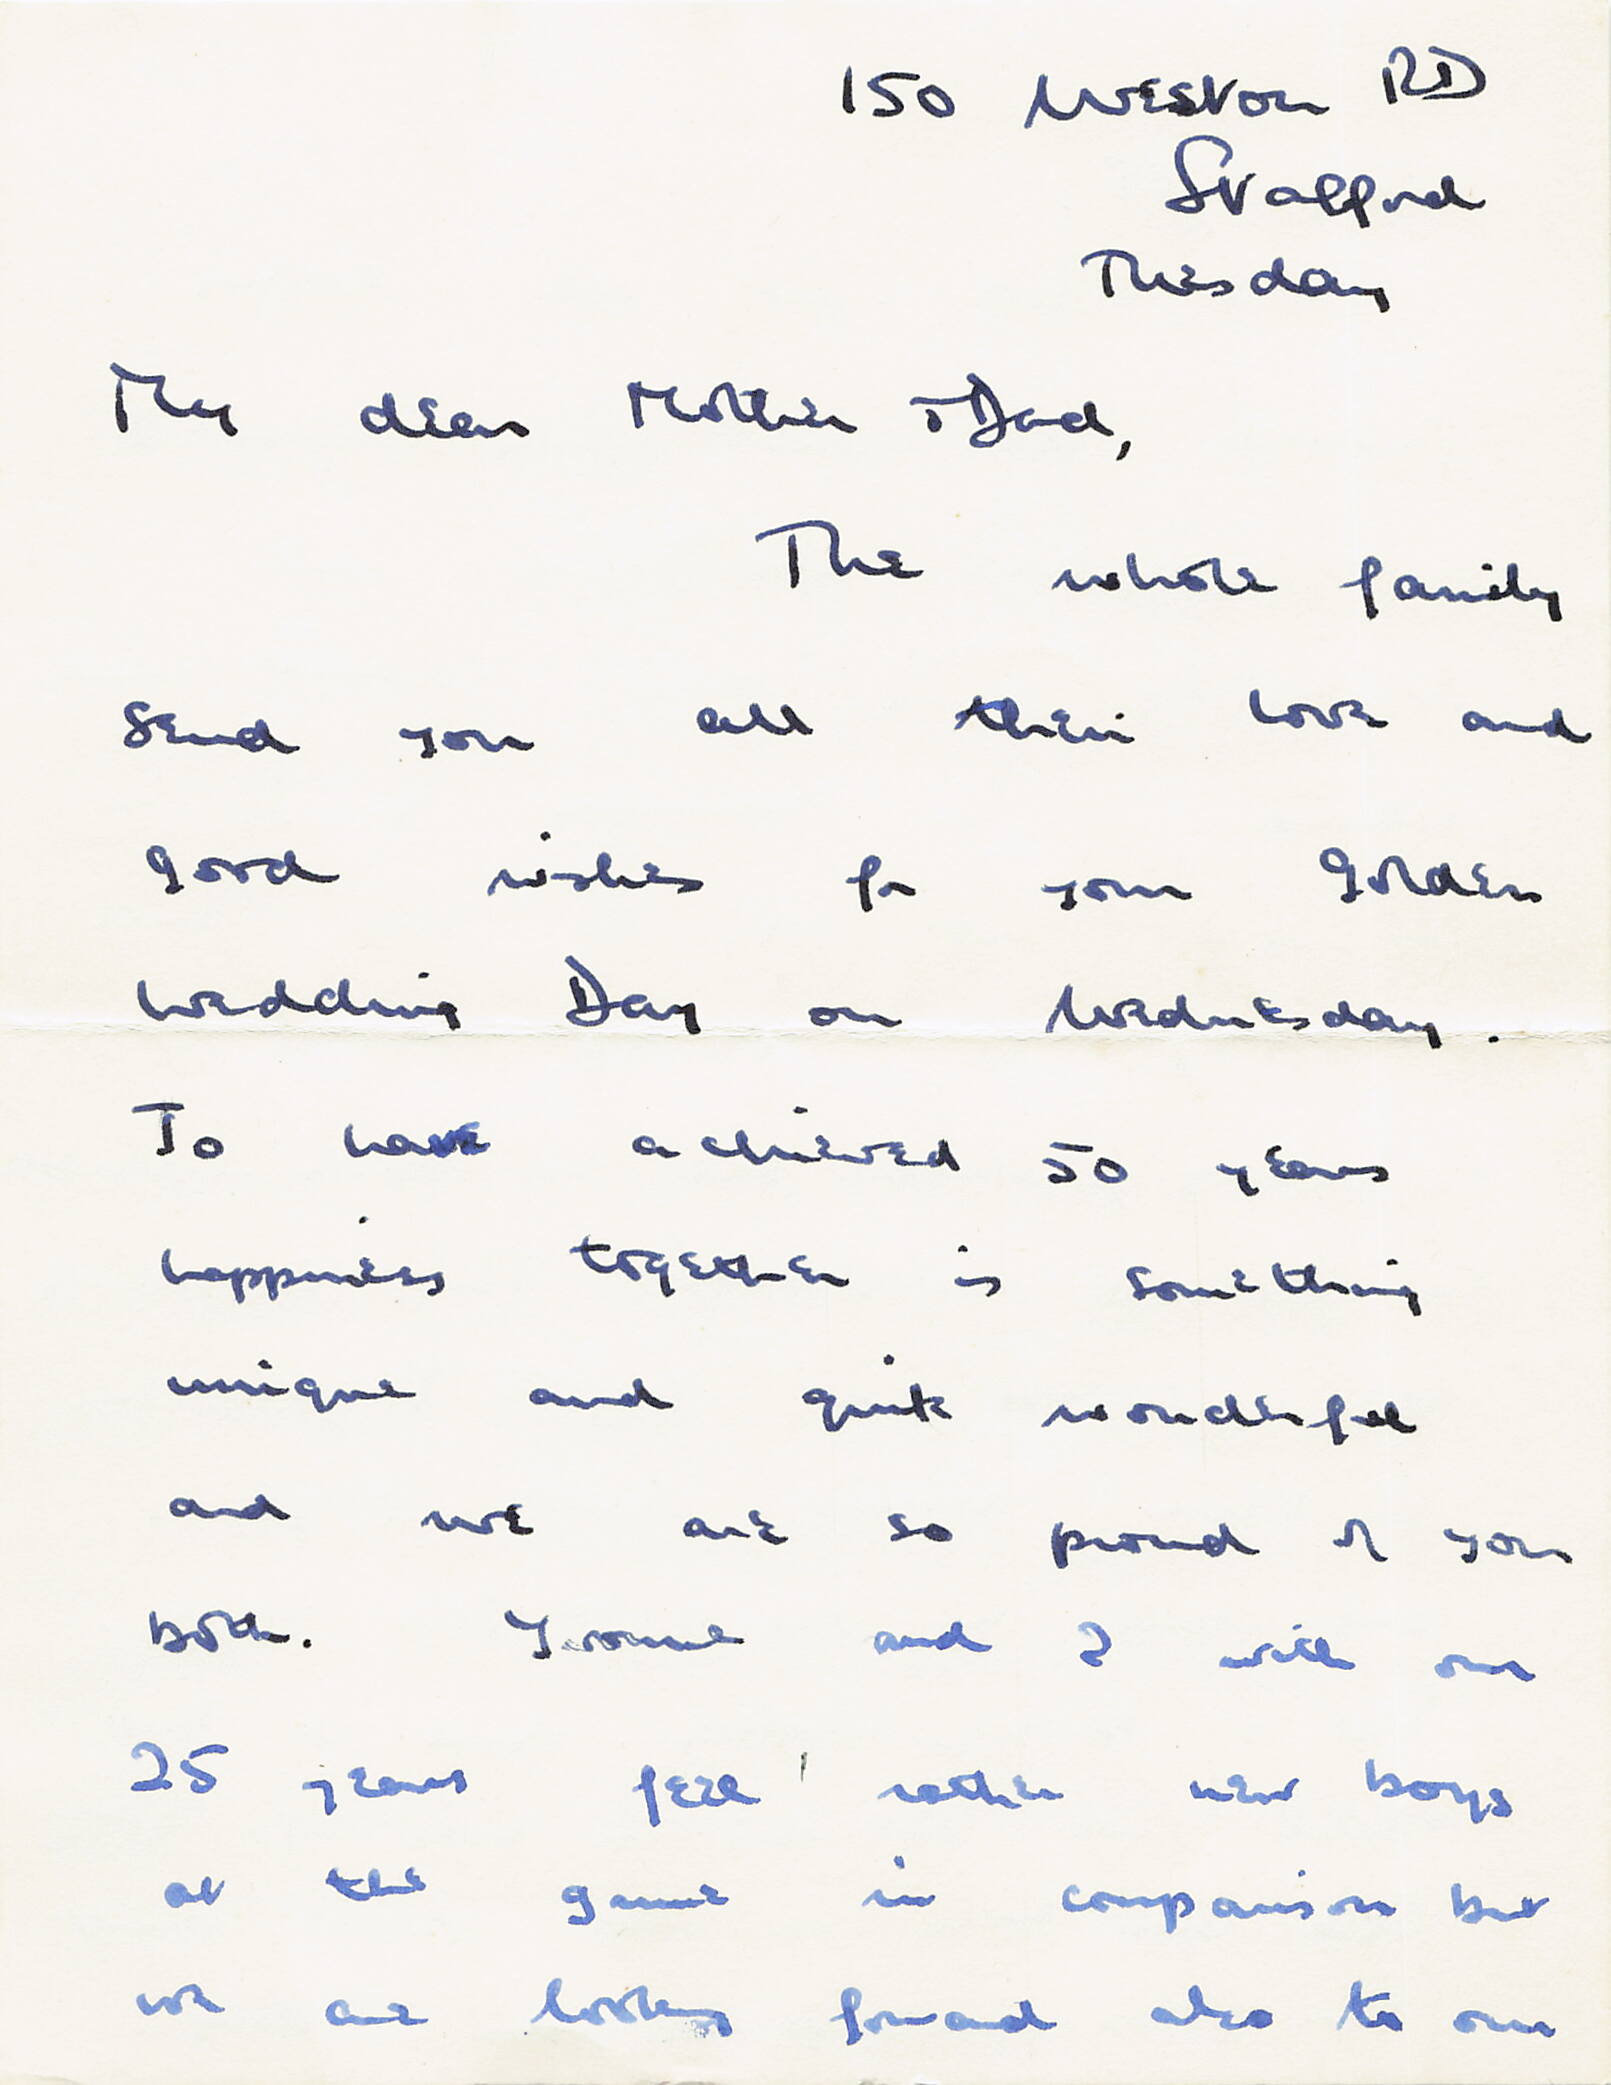 150 Weston RD
Stafford
Tuesday
My dear Mother + Dad,
The whole family
send you all their love and
good wishes for your Golden
Wedding Day on Wednesday.
To have achieved 50 years
happiness together is something
unique and quite wonderful
and we are so proud of you
both. Yvonne and I with our
25 years feel rather new boys
at the game in comparison but
we are looking forward also to our